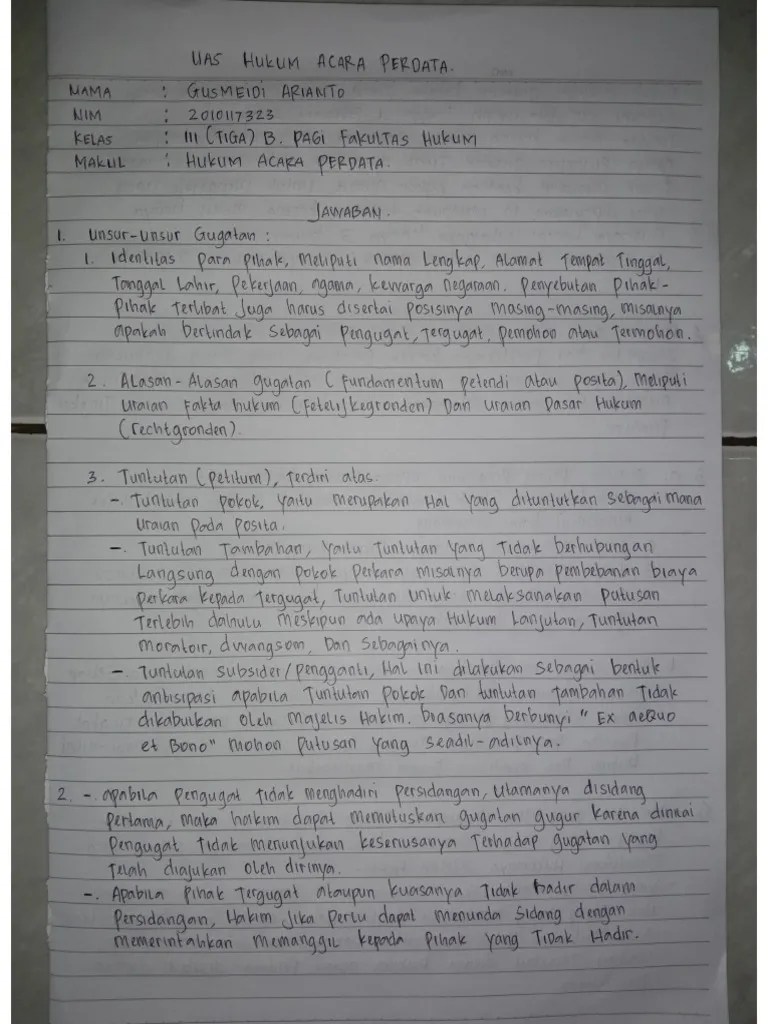 UAS HUKUM ACARA PERDATA.
NAMA : GUSMEIDI ARIANTO
NIM : 2010117323
KELAS : III (TIGA) B. PAGI FAKULTAS HUKUM
MAKUL : HUKUM ACARA PERDATA.
JAWABAN.
1. Unsur-unsur Gugatan :
1. Identitas para pihak, Meliputi nama Lengkap, Alamat Tempat Tinggal,
Tanggal Lahir, Pekerjaan, agama, kewarga negaraan. Penyebutan Pihak-
Pihak Terlibat Juga harus disertai posisinya masing-masing, misalnya
apakah bertindak Sebagai Pengugat, Tergugat, Pemohon atau Termohon.
2. Alasan-Alasan gugatan (Fundamentum petendi atau posita), Meliputi
uraian Fakta hukum (Fetelijkegronden) Dan uraian Dasar Hukum
(rechtgronden).
3. Tuntutan (petitum), Terdiri atas.
-. Tuntutan pokok, yaitu merupakan Hal yang dituntutkan Sebagai mana
uraian pada posita.
-. Tuntutan Tambahan, yaitu Tuntutan yang Tidak berhubungan
Langsung dengan pokok perkara misalnya berupa pembebanan biaya
perkara kepada Tergugat, Tuntutan untuk melaksanakan putusan
Terlebih dahulu meskipun ada upaya Hukum Lanjutan, Tuntutan
moratoir, dwangsom, Dan Sebagainya.
- Tuntutan subsider/pengganti, Hal ini dilakukan Sebagai bentuk
antisipasi apabila Tuntutan pokok Dan tuntutan tambahan Tidak
dikabulkan oleh majelis Hakim. biasanya berbunyi " Ex aequo
et Bono" mohon putusan yang seadil-adilnya.
2. -. apabila Pengugat Tidak menghadiri persidangan, utamanya disidang
pertama, maka hakim dapat memutuskan gugatan gugur karena dinilai
Pengugat Tidak menunjukan keseriusanya Terhadap gugatan yang
Telah diajukan oleh dirinya.
-. Apabila Pihak Tergugat ataupun kuasanya Tidak hadir dalam
Persidangan, Hakim Jika Perlu dapat menunda Sidang dengan
memerintahkan memanggil kepada pihak yang Tidak Hadir.